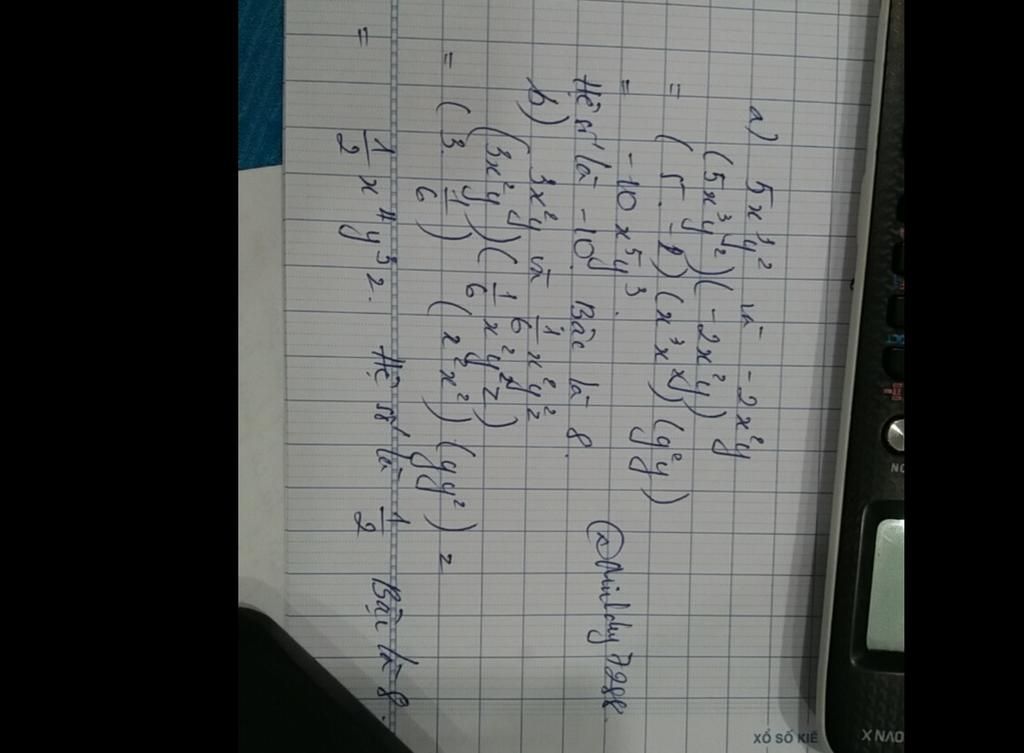 a) 5x³y² và -2x²y
(5x³y²)(-2x²y)
= (5.-2)(x³x²)(y²y)
= -10x⁵y³.
Hệ số là -10. Bậc là 8.
b) 3x²y và 1/6 x²y²z
(3x²y)(1/6 x²y²z)
= (3.1/6)(x²x²)(yy²)z
= 1/2 x⁴y³z. Hệ số là 1/2 Bậc là 8.
XỔ SỐ KIẾ
VN X
ON